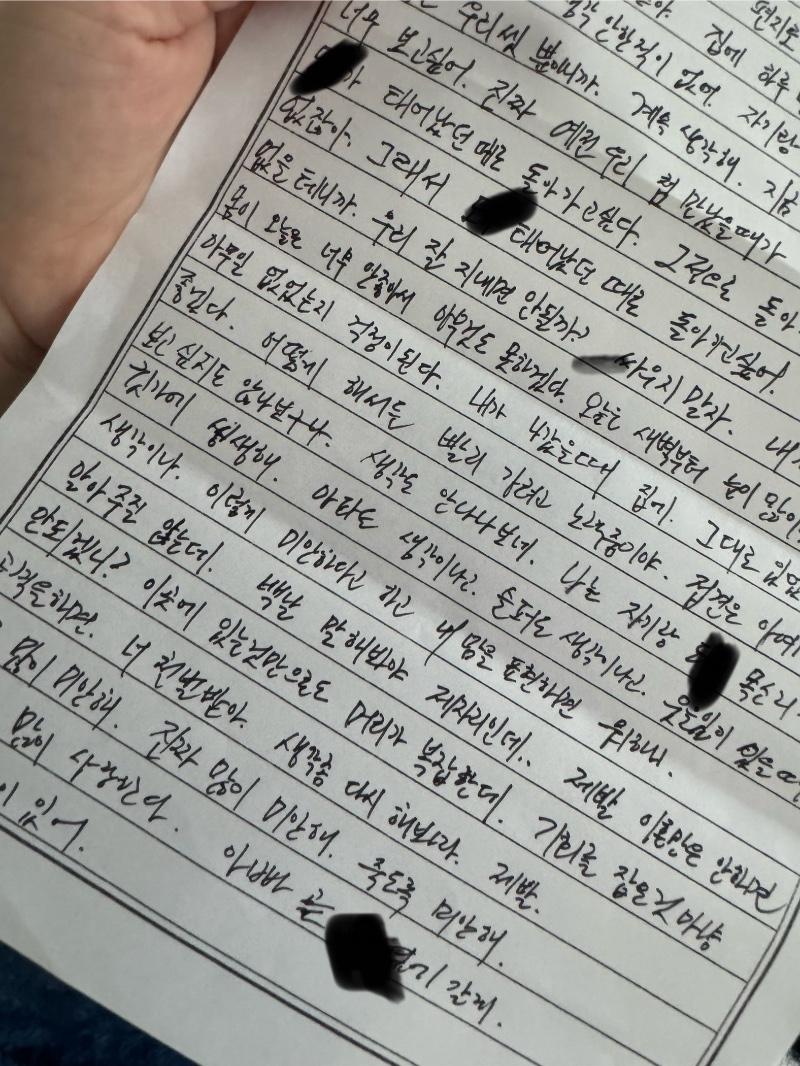 편지로
생각 안한적이 없어. 자기랑
우리씬 뿐이니까. 계속 생각해. 지금
너무 보고싶어. 진짜 예전 우리 첨 만났을때가
가 태어났던 때로 돌아가고싶다. 그적으로 돌아
없잖아. 그래서 태어났던 때로 돌아가고싶어.
없을테니까. 우리 잘 지내면 안될까? 싸우지 말자. 내가
몸이 오늘은 너무 안좋아서 아무것도 못하겠다. 오늘은 새벽부터 눈이 많이
아무일 없었는지 걱정이된다. 내가 나갔을때 집에. 그대로 있었
좋겠다. 어떻게 해서든 빨리 가려고 노력중이야. 접견은 아예
보고 싶지도 않나보구나. 생각도 안나나보네. 나는 자기랑 목소리
귓가에 쌩쌩해. 아파도 생각이나고. 슬퍼도 생각이나고. 웃을일이 있을때
생각이나. 이렇게 미안하다고 하고 내 맘을 표현하면 뭐하니.
알아주진 않는데. 백날 말해봐야 제자리인데.. 제발 이혼만은 안하면
안되겠니? 이곳에 있는것만으로도 머리가 복잡한데. 기회를 잡은것 마냥
하면. 너 천벌받아. 생각좀 다시 해봐라. 제발.
많이 미안해. 진짜 많이 미안해. 죽도록 미안해.
많이 사랑한다. 아빠 곧 갈게.
있어.